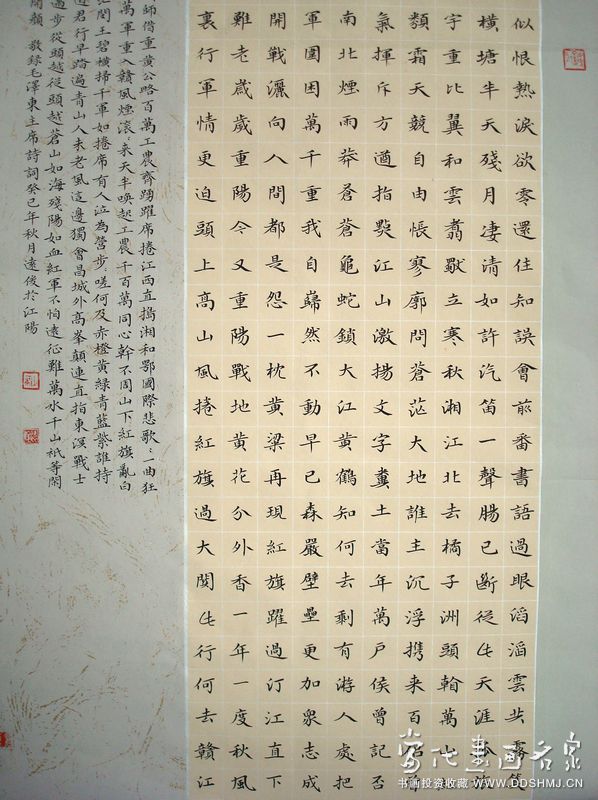 似恨熱淚欲零還住知誤會前番書語過眼滔滔雲共霧
橫塘半天殘月淒清如許汽笛一聲腸已斷從此天涯
宇重比翼和雲翥獨立寒秋湘江北去橘子洲頭萬山
類霜天競自由悵寥廓問蒼茫大地誰主沉浮攜来百侶
氣揮斥方遒指點江山激揚文字糞土當年萬戶侯曾記否
南北煙雨莽蒼蒼龜蛇鎖大江黃鶴知何去剩有游人處把
軍圍困萬千重我自巋然不動早已森嚴壁壘更加衆志成
開戰灑向人間都是怨一枕黃粱再現紅旗躍過汀江直下
難老歲歲重陽今又重陽戰地黃花分外香一年一度秋風
裏行軍情更迫頭上高山風捲紅旗過大関此行何去贛江
師借重黃公略百萬工農齊踴躍席捲江西直搗湘和鄂國際悲歌歌一曲狂
萬軍重入贛風煙滾滾来天半喚起工農千百萬同心幹不周山下紅旗亂白
閻王碧橫掃千軍如捲席有人泣為營步步嗟何及赤橙黃綠青藍紫誰持
君行早踏遍青山人未老風這邊獨會昌城外高峯顛連直指東溟戰士
邁步從頭越從頭越蒼山如海殘陽如血紅軍不怕遠征難萬水千山祇等閑
開顏 敬錄毛澤東主席詩詞癸巳年秋月遠俊於江陽
當代書畫名家
书画投资收藏 WWW.DDSHMJ.CN